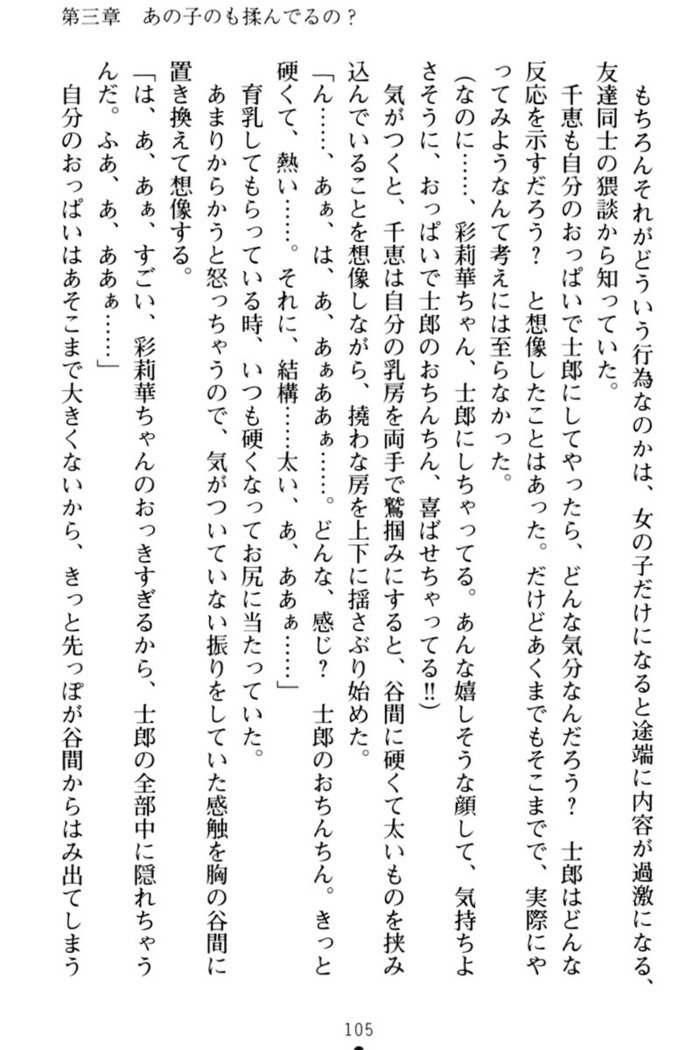 第三章　あの子のも揉んでるの？
もちろんそれがどういう行為なのかは、女の子だけになると途端に内容が過激になる、
友達同士の猥談から知っていた。
千恵も自分のおっぱいで士郎にしてやったら、どんな気分なんだろう？　士郎はどんな
反応を示すだろう？　と想像したことはあった。だけどあくまでもそこまでで、実際にや
ってみようなんて考えには至らなかった。
（なのに……、彩莉華ちゃん、士郎にしちゃってる。あんな嬉しそうな顔して、気持ちよ
さそうに、おっぱいで士郎のおちんちん、喜ばせちゃってる‼）
気がつくと、千恵は自分の乳房を両手で鷲掴みにすると、谷間に硬くて太いものを挟み
込んでいることを想像しながら、撓わな房を上下に揺さぶり始めた。
「ん……、あぁ、は、あ、あぁああぁ……。どんな、感じ？　士郎のおちんちん。きっと
硬くて、熱い……。それに、結構……太い、あ、ああぁ……」
育乳してもらっている時、いつも硬くなってお尻に当たっていた。
あまりからかうと怒っちゃうので、気がついていない振りをしていた感触を胸の谷間に
置き換えて想像する。
「は、あ、あぁ、すごい、彩莉華ちゃんのおっきすぎるから、士郎の全部中に隠れちゃう
んだ。ふあ、あ、ああぁ……」
自分のおっぱいはあそこまで大きくないから、きっと先っぽが谷間からはみ出てしまう
105